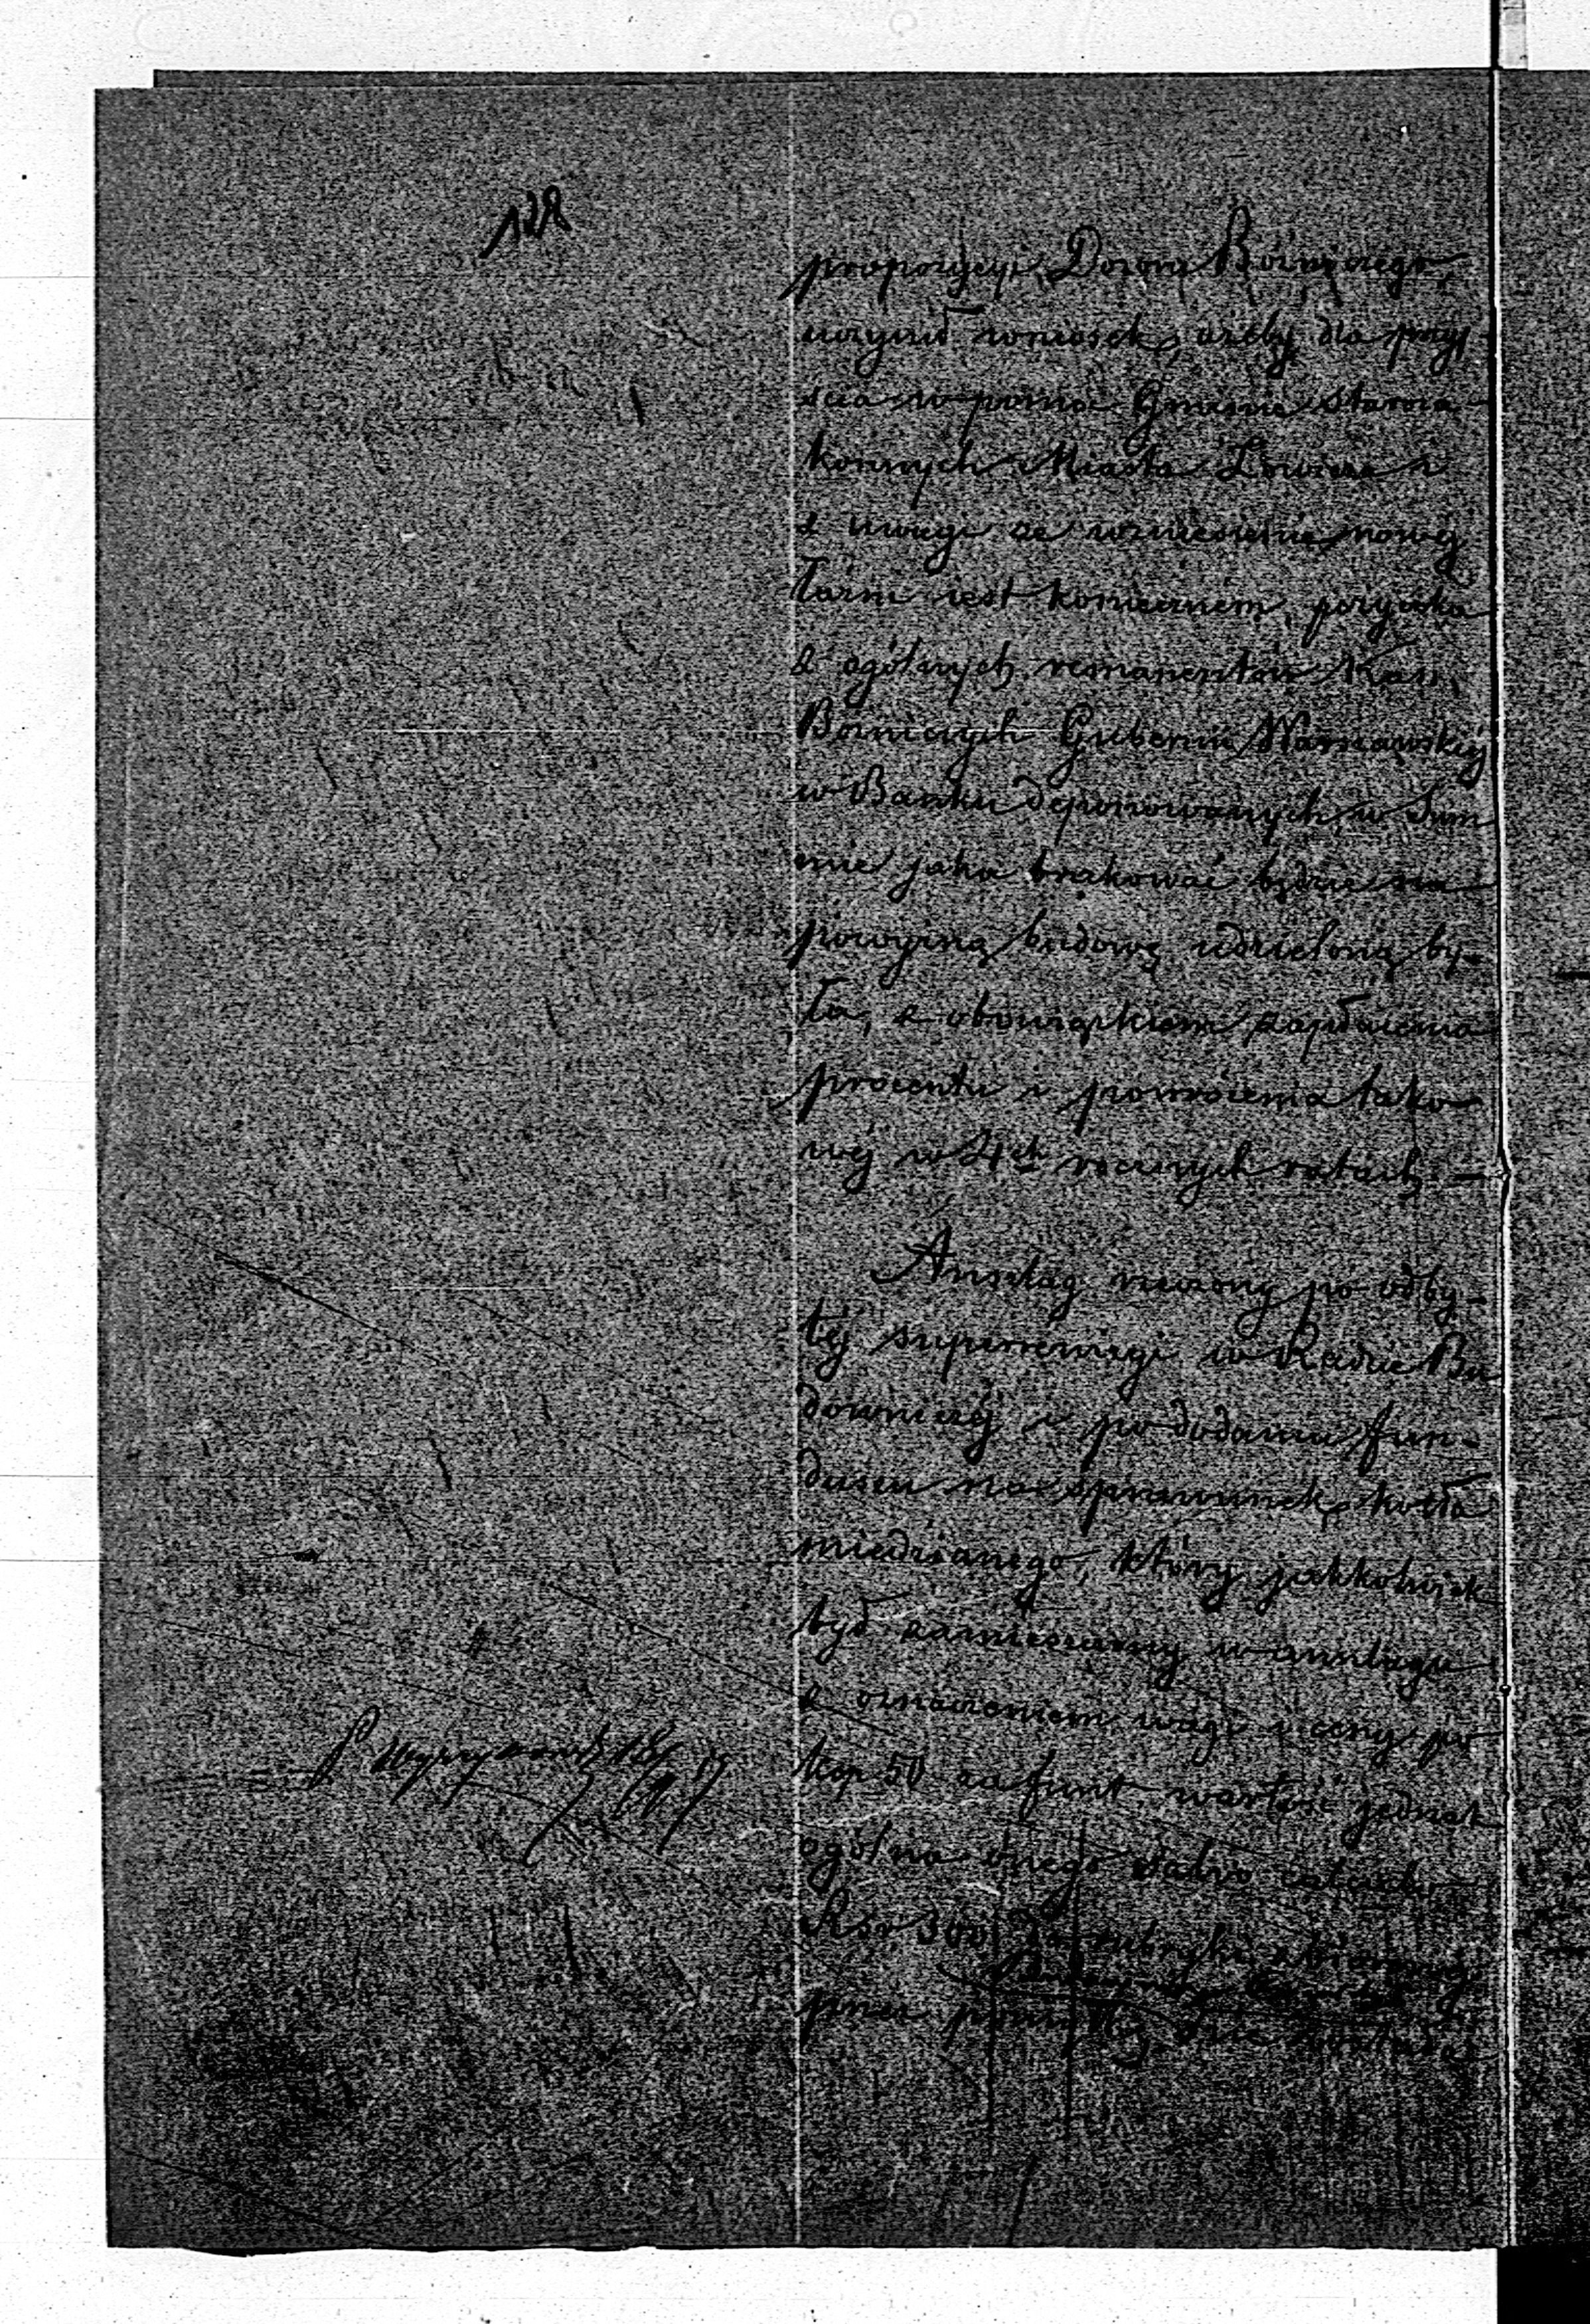 128
propozycyi Dozoru Bóżniczego,
uczynił wniosek, ażeby dla przyj
ścia w pomoc Gminie Staroza-
konnych Miasta Łowicza i
z uwagi że wzniesienie nowéj
łaźni iest koniecznem, pożyczka
z ogólnych remanentów Kass
Bóżniczych Gubernii Warszawskiéj
w Banku deponowanych, w Sum
mie jaka brakować będzie na
powyższą budowę udzieloną by-
ła, z obowiązkiem zapłacenia
procentu i powrócenia tako-
wéj w 4ch rocznych ratach —
Anszlag rzeczony po odby-
téj superrewizyi w Radzie Bu
downiczéj i po dodaniu fun-
duszu na sprawunek kotła
miedzianego, który jakkolwiek
był zamieszczony w anszlagu
z oznaczeniem wagi i ceny po
kop 50 za funt wartość jednak
ogólna onego
Rsr 300 do rubryki
przez pomyłkę nie